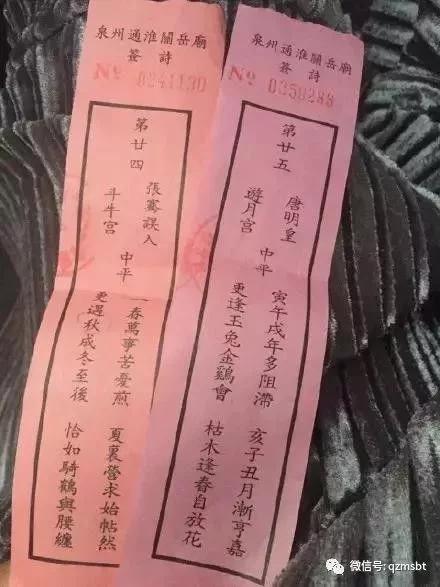 泉州通淮關岳廟
簽詩
No 0241130
第廿四
張騫誤入
斗牛宮
中平
一春萬事苦憂煎 夏裏營求始帖然
更遇秋成冬至後 恰如騎鶴與腰纏
泉州通淮關岳廟
簽詩
No 0358288
第廿五
唐明皇
遊月宮
中平
寅午戌年多阻滯 亥子丑月漸亨嘉
更逢玉兔金鷄會 枯木逢春自放花
微信号: qzmsbt